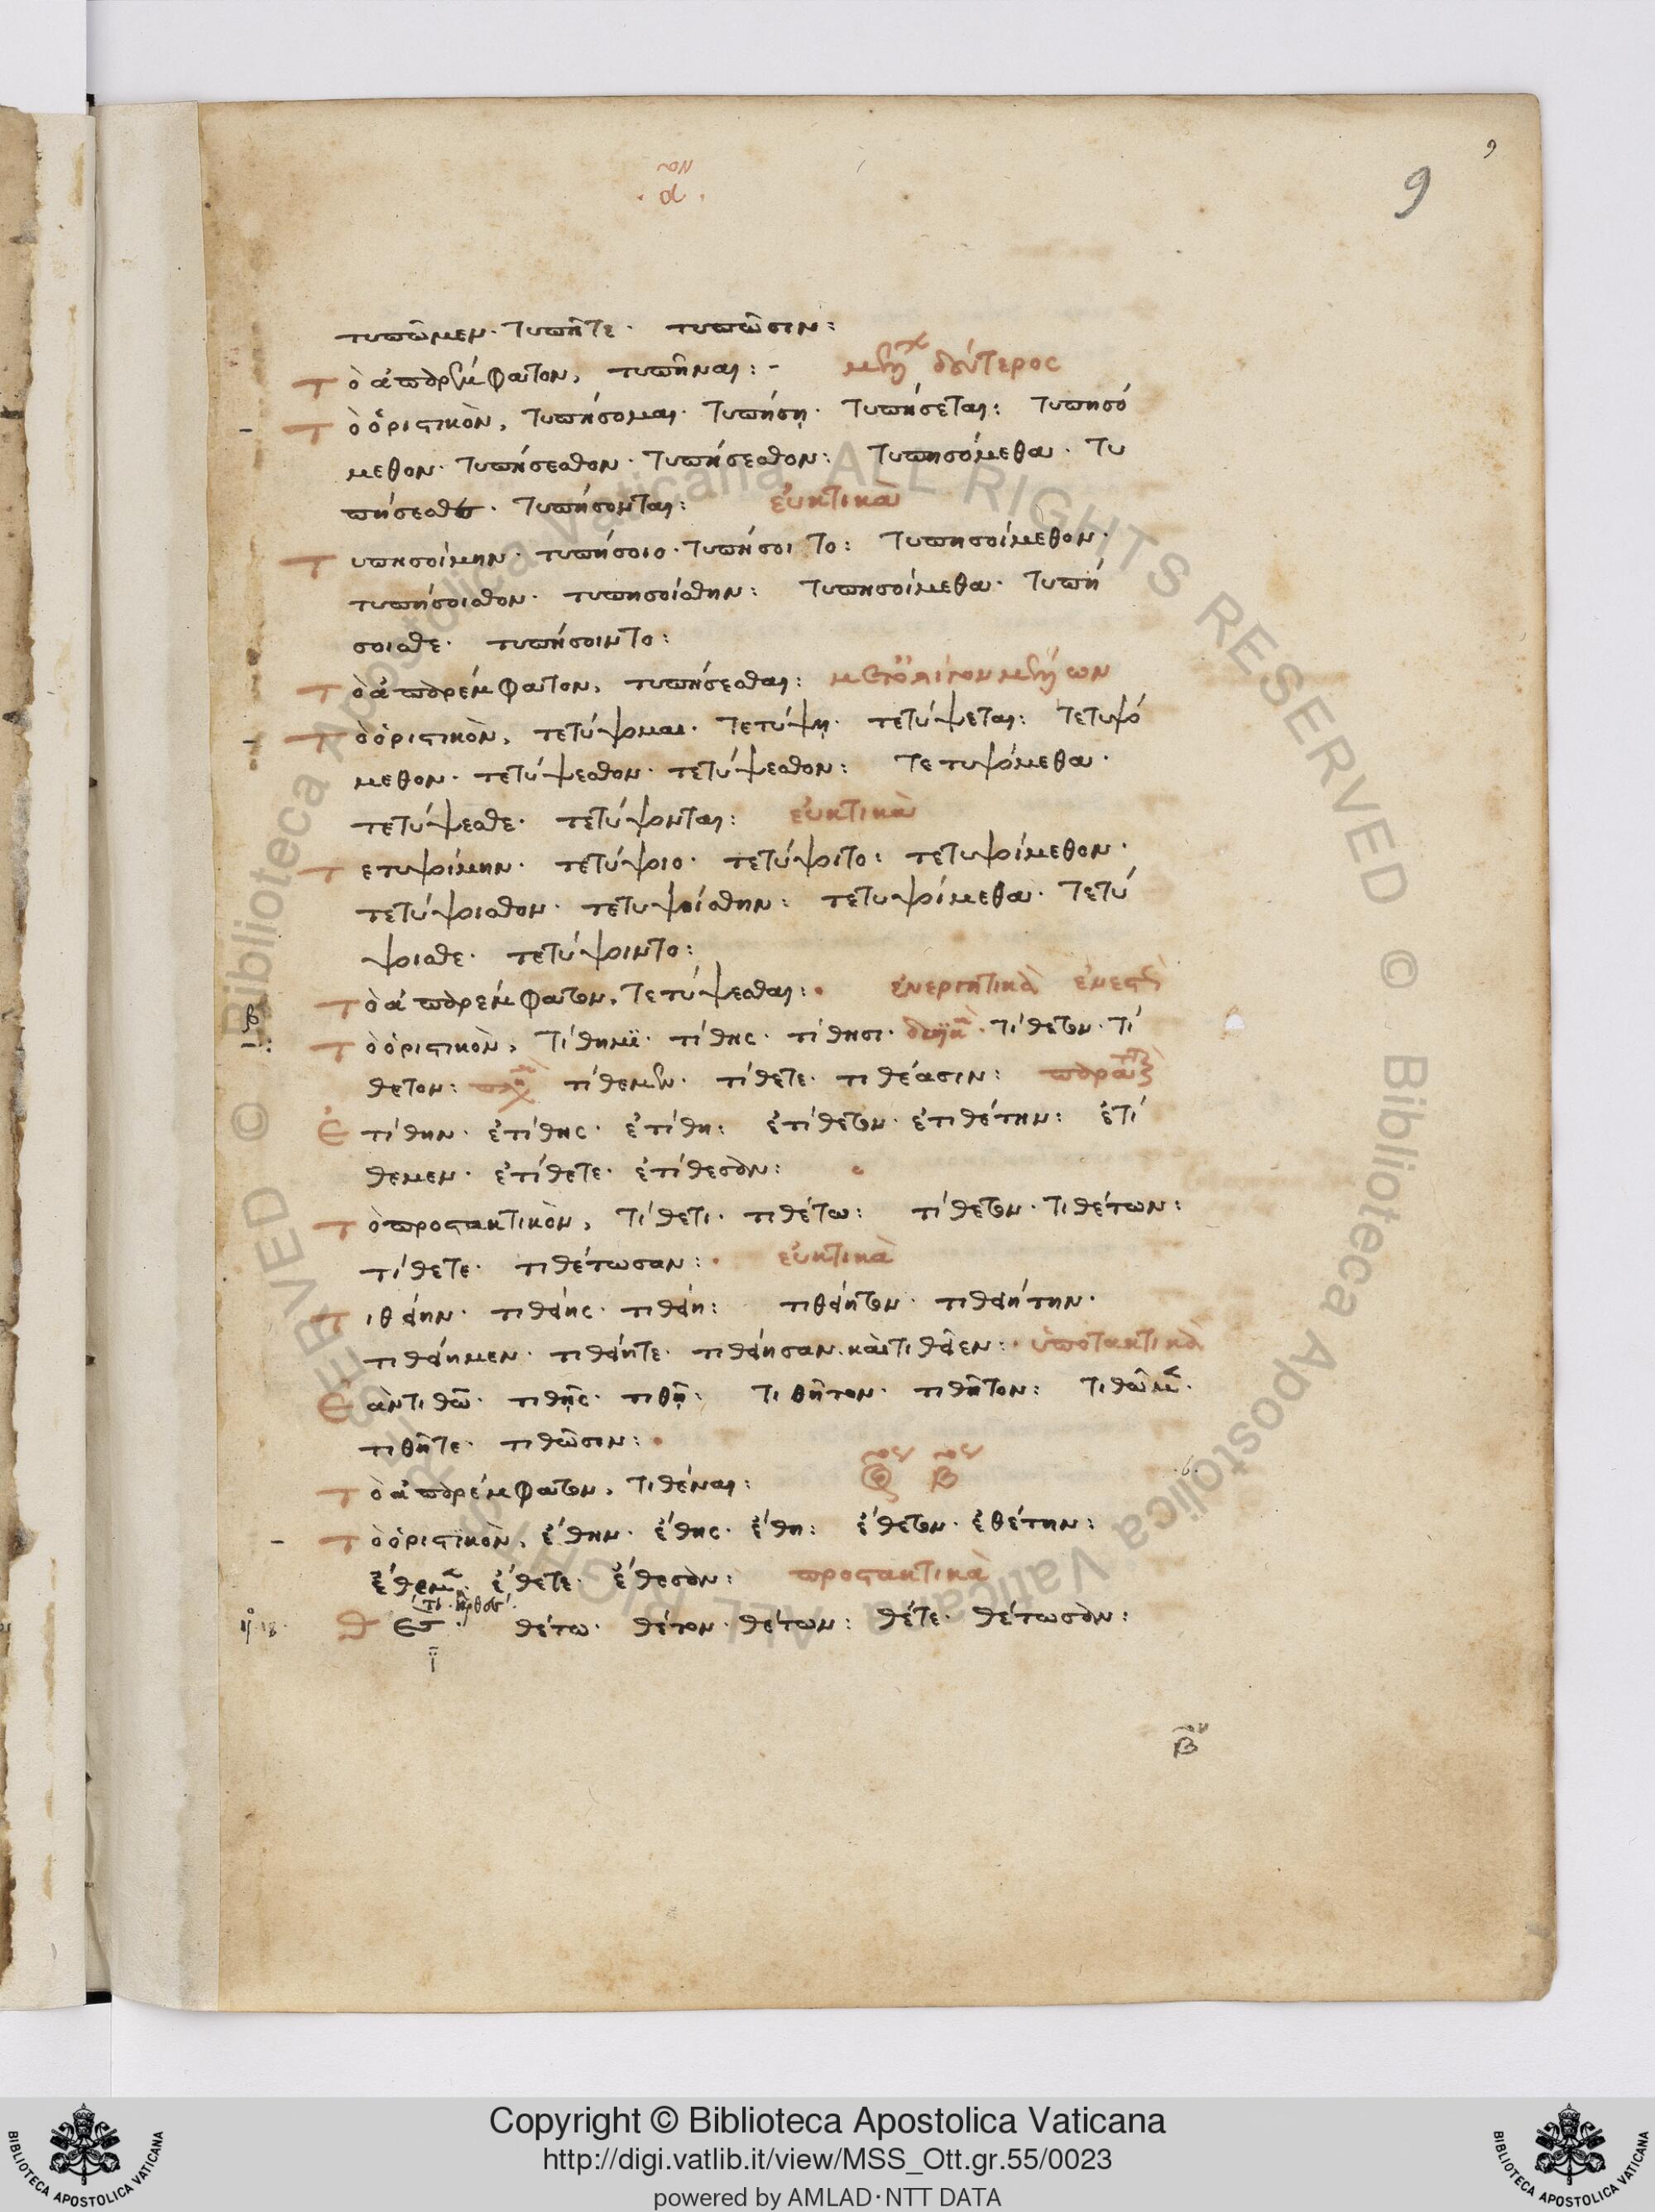 9
9
α ον
τυπῶμεν· τυπῆτε· τυπῶσιν:
Τὸ ἀπαρέμφατον, τυπῆναι:- μέλλ δεύτερος
Τὸ ὁριστικὸν, τυπήσομαι· τυπήσῃ· τυπήσεται: τυπησό
μεθον· τυπήσεσθον· τυπήσεσθον: τυπησόμεθα· τυ
πήσεσθε· τυπήσονται: εὐκτικὰ
Τυπησοίμην· τυπήσοιο· τυπήσοιτο: τυπησοίμεθον·
τυπήσοισθον· τυπησοίσθην: τυπησοίμεθα· τυπή
σοισθε· τυπήσοιντο:
Τὸ ἀπαρέμφατον, τυπήσεσθαι: μετ' ὀλίγον μέλλων
Τὸ ὁριστικὸν, τετύψομαι· τετύψῃ· τετύψεται: τετυψό
μεθον· τετύψεσθον· τετύψεσθον: τετυψόμεθα·
τετύψεσθε· τετύψονται: εὐκτικὰ
Τετυψοίμην· τετύψοιο· τετύψοιτο: τετυψοίμεθον·
τετύψοισθον· τετυψοίσθην: τετυψοίμεθα· τετύ
ψοισθε· τετύψοιντο:
Τὸ ἀπαρέμφατον, τετύψεσθαι: ἐνεργητικὰ ἐνεστ
Τὸ ὁριστικὸν, τίθημι· τίθης· τίθησι· δυϊκ· τίθετον· τί
θετον: πλη τίθεμεν· τίθετε· τιθέασιν: παρατ
Ἐτίθην· ἐτίθης· ἐτίθη: ἐτίθετον· ἐτιθέτην: ἐτί
θεμεν· ἐτίθετε· ἐτίθεσαν:
Τὸ προστακτικὸν, τίθετι· τιθέτω: τίθετον· τιθέτων:
τίθετε· τιθέτωσαν: εὐκτικὰ
Τιθείην· τιθείης· τιθείη: τιθείητον· τιθειήτην·
τιθείημεν· τιθείητε· τιθείησαν· καὶ τιθεῖεν: ὑποτακτικὰ
Ἐὰν τιθῶ· τιθῇς· τιθῇ: τιθῆτον· τιθῆτον: τιθῶμε·
τιθῆτε· τιθῶσιν:
Τὸ ἀπαρέμφατον, τιθέναι: β
Τὸ ὁριστικὸν, ἔθην· ἔθης· ἔθη: ἔθετον· ἐθέτην:
ἔθεμε· ἔθετε· ἔθεσαν: προστακτικὰ
Θὲς· θέτω· θέτον· θέτων: θέτε· θέτωσαν:
β
Copyright © Biblioteca Apostolica Vaticana
http://digi.vatlib.it/view/MSS_Ott.gr.55/0023
powered by AMLAD·NTT DATA